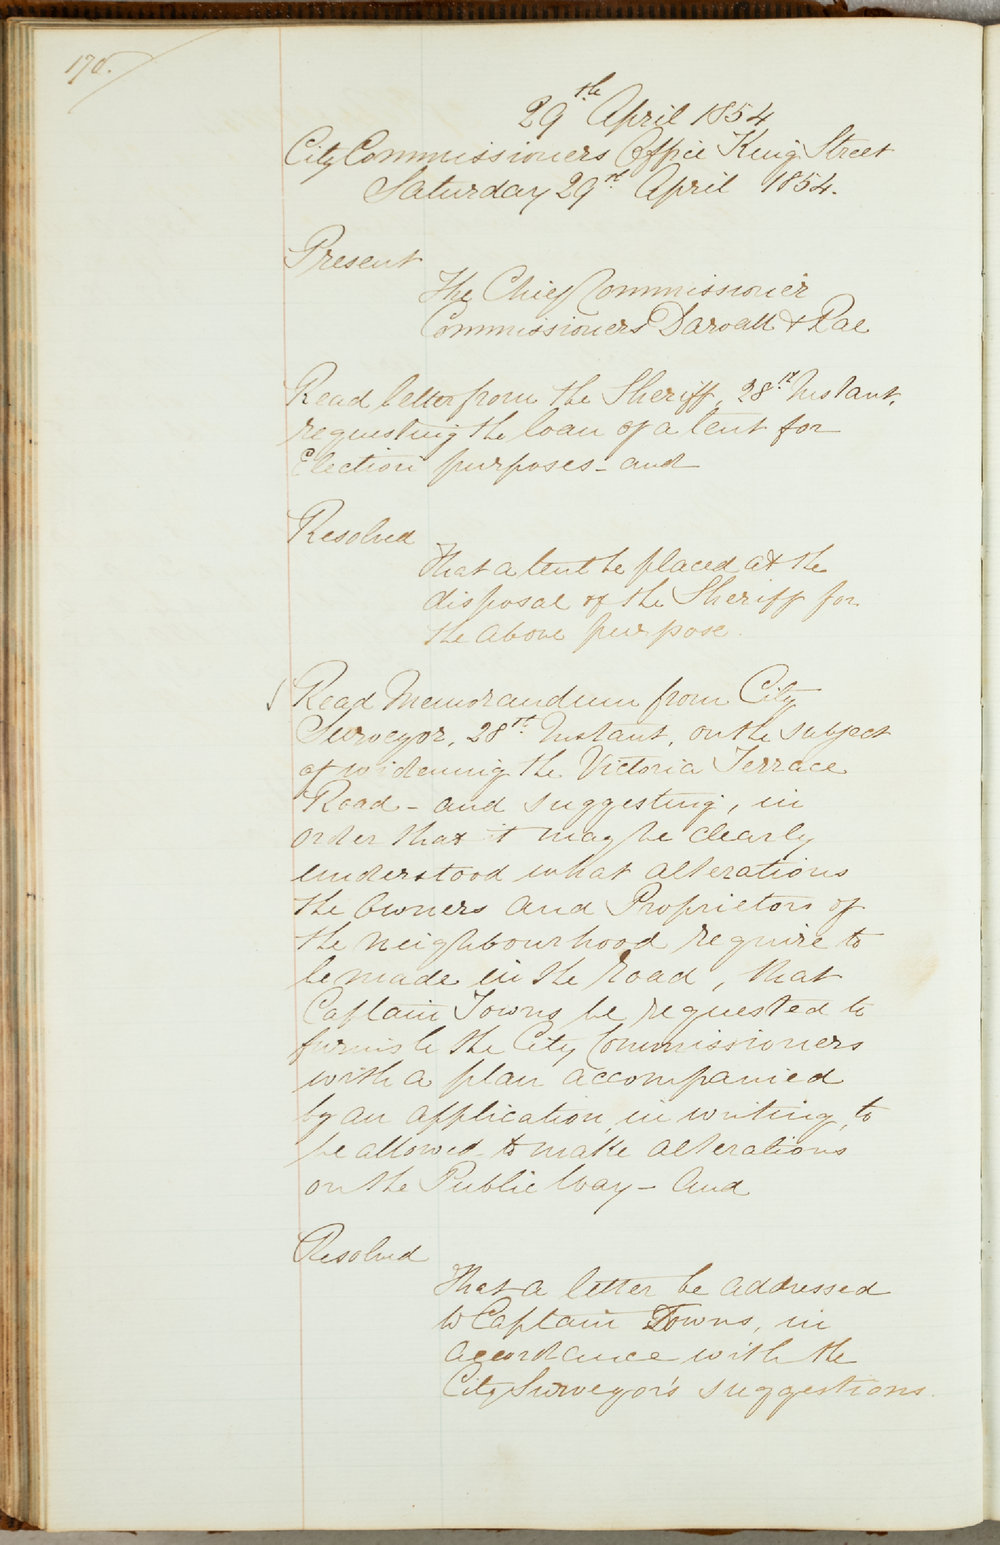 170.
29th April 1854
City Commissioners Office King Street
Saturday 29th April 1854.
Present
The Chief Commissioner
Commissioners Darvall & Rae
Read letter from the Sheriff, 28th Instant,
requesting the loan of a tent for
Election purposes - and
Resolved
That a tent be placed at the
disposal of the Sheriff for
the above purpose.
Read Memorandum from City
Surveyor, 28th Instant, on the subject
of widening the Victoria Terrace
Road - and suggesting, in
order that it may be clearly
understood what alterations
the Owners and Proprietors of
the neighbourhood require to
be made in the road, that
Captain Towns be requested to
furnish the City Commissioners
with a plan accompanied
by an application, in writing, to
be allowed to make alterations
on the Public Way - And
Resolved
That a letter be addressed
to Captain Towns, in
accordance with the
City Surveyor's suggestions.